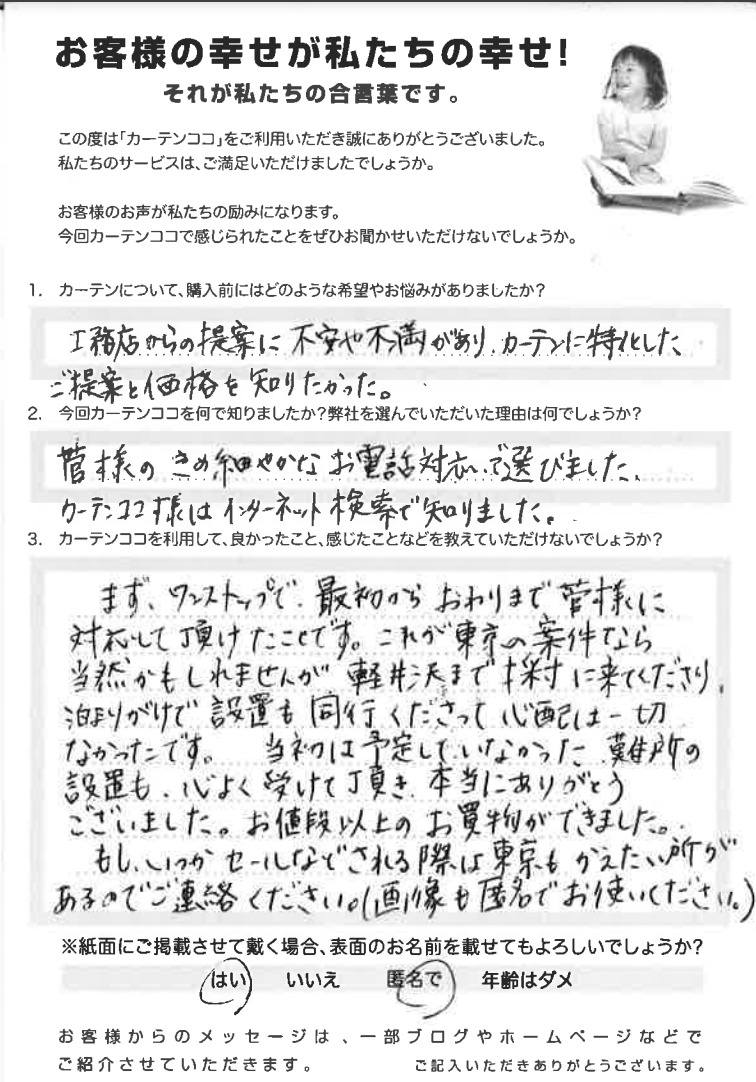 お客様の幸せが私たちの幸せ!
それが私たちの合言葉です。
この度は「カーテンココ」をご利用いただき誠にありがとうございました。
私たちのサービスは、ご満足いただけましたでしょうか。
お客様のお声が私たちの励みになります。
今回カーテンココで感じられたことをぜひお聞かせいただけないでしょうか。
1. カーテンについて、購入前にはどのような希望やお悩みがありましたか?
工務店からの提案に不安や不満があり、カーテンに特化した
ご提案と価格を知りたかった。
2. 今回カーテンココを何で知りましたか?弊社を選んでいただいた理由は何でしょうか?
菅様のきめ細やかなお電話対応で選びました。
カーテンココ様はインターネット検索で知りました。
3. カーテンココを利用して、良かったこと、感じたことなどを教えていただけないでしょうか?
まず、ワンストップで、最初からおわりまで菅様に
対応して頂けたことです。これが東京の案件なら
当然かもしれませんが軽井沢まで採寸に来てくださり、
泊まりがけで設置も同行くださって心配は一切
なかったです。 当初は予定していなかった難所の
設置も、心よく受けて頂き、本当にありがとう
ございました。お値段以上のお買物ができました。
もし、いつかセールなどされる際は東京もかえたい所が
あるのでご連絡ください。(画像も匿名でお使いください。)
※紙面にご掲載させて戴く場合、表面のお名前を載せてもよろしいでしょうか?
はい いいえ 匿名で 年齢はダメ
お客様からのメッセージは、一部ブログやホームページなどで
ご紹介させていただきます。 ご記入いただきありがとうございます。